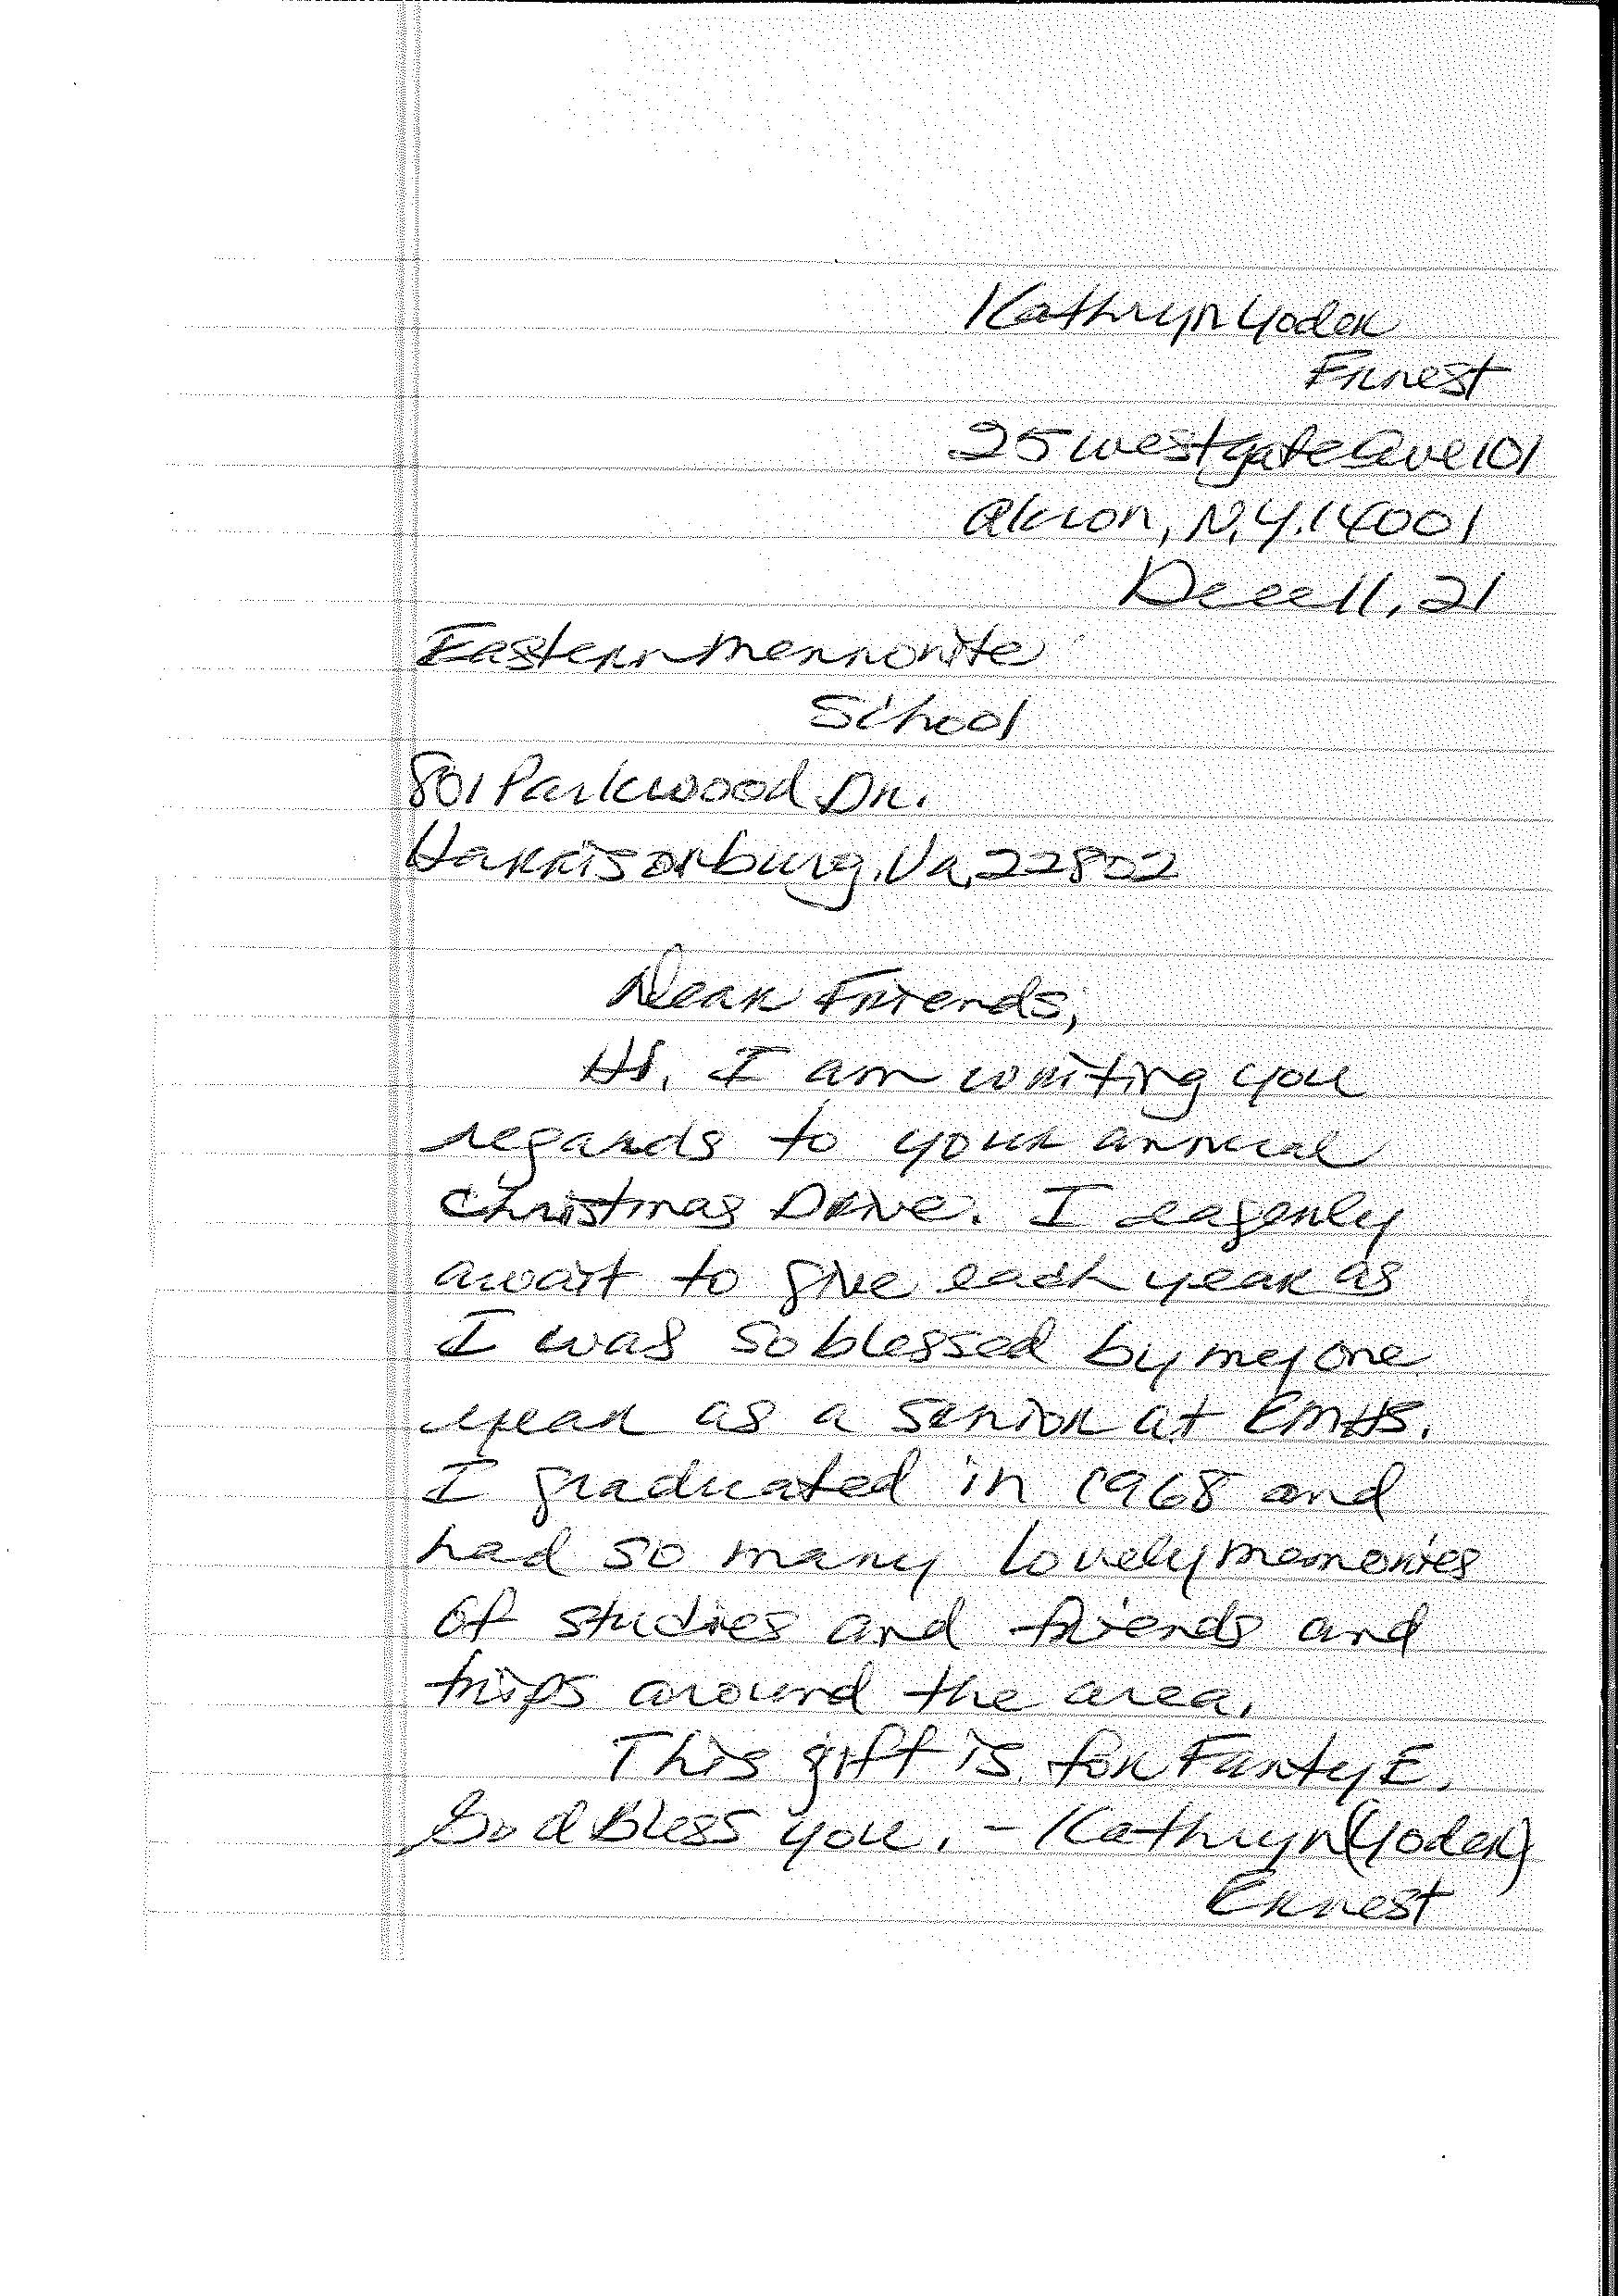 Kathryn Yoder
Ernest
25 Westgate Ave 101
Akron, N.Y. 14001
Dec 11, 21
Eastern Mennonite
School
801 Parkwood Dr.
Harrisonburg, Va, 22802
Dear Friends,
Hi. I am writing you
regards to your annual
Christmas Drive. I eagerly
await to give each year as
I was so blessed by my one
year as a senior at EMHS.
I graduated in 1968 and
had so many lovely memories
of studies and friends and
trips around the area.
This gift is for E.
God Bless you. - Kathryn (Yoder)
Ernest